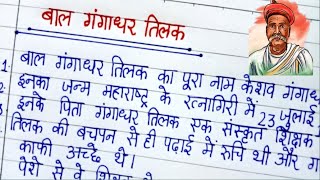 बाल गंगाधर तिलक
1. बाल गंगाधर तिलक का पूरा नाम केशव गंगाध
इनका जन्म महाराष्ट्र के रत्नागिरी में 23 जुलाई
इनके पिता गंगाधर तिलक एक संस्कृत शिक्षक
तिलक की बचपन से ही पढ़ाई में रुचि थी और ग
काफी अच्छे थे।
पेशे से वे